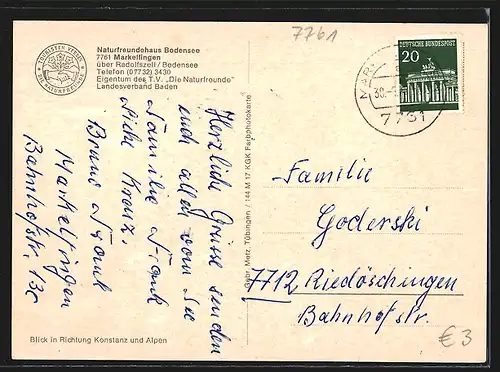 7761
Naturfreundehaus Bodensee
7761 Markelfingen
über Radolfszell / Bodensee
Telefon (07732) 3430
Eigentum des T.V. „Die Naturfreunde"
Landesverband Baden
TOURISTEN VEREIN
DIE NATURFREUNDE
DEUTSCHE BUNDESPOST
20
MAR
30.
7761
Herzliche Grüsse senden
euch allen vom See
Familie Frank
Bruno Frank
Markelfingen
Bahnhofstr. 13c
Gebr. Metz, Tübingen / 144 M 17 KGK Farbphotokarte
Familie
Goderski
7712 Riedöschingen
Bahnhofstr.
Blick in Richtung Konstanz und Alpen
€ 3